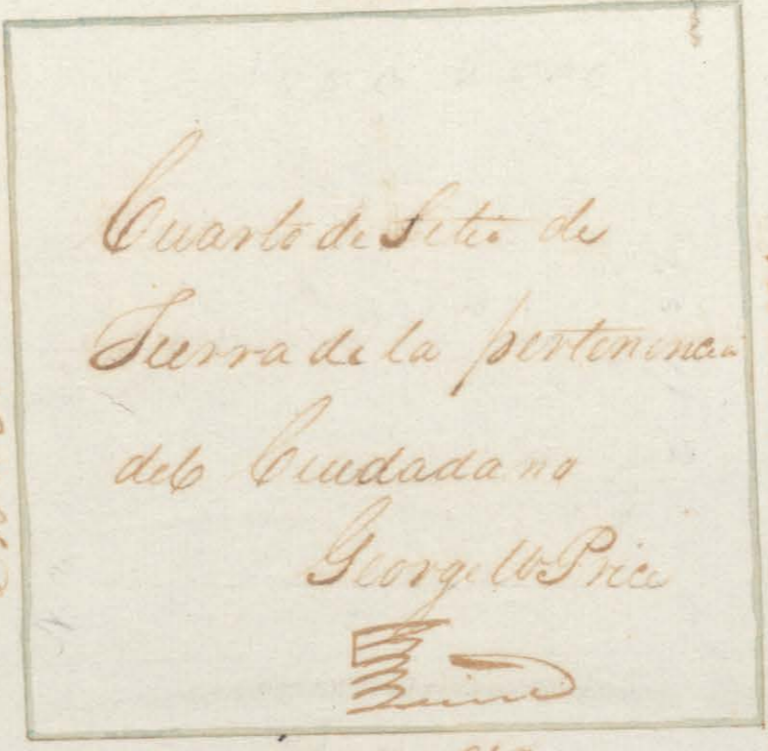 Cuarto de Sitio de
Tierra de la pertenencia
del Ciudadano
George W Price